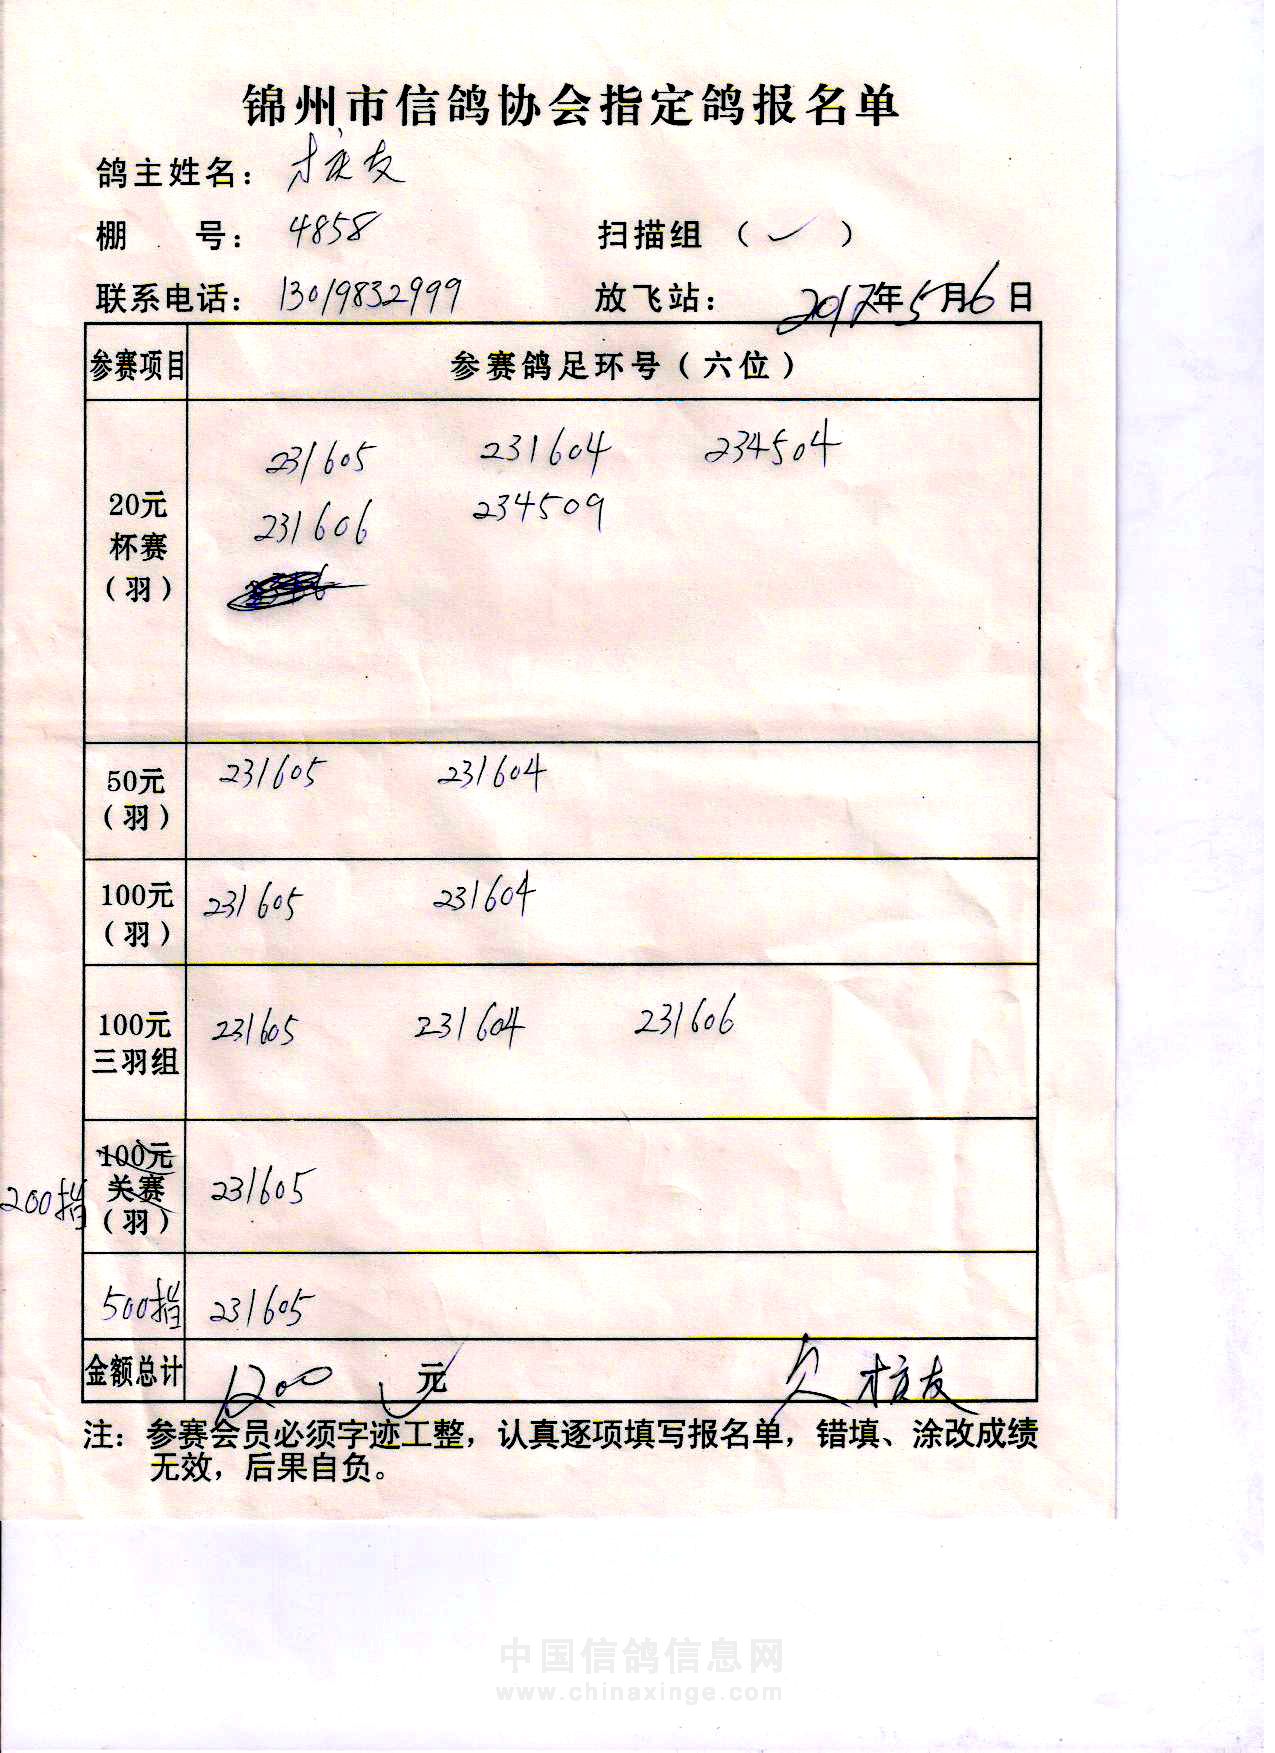 锦州市信鸽协会指定鸽报名单
鸽主姓名：
棚 号： 4858 扫描组（✓）
联系电话： 13019832999 放飞站： 2017年5月6日
参赛项目 参赛鸽足环号（六位）
20元杯赛（羽） 231605 231604 234504
231606 234509
50元（羽） 231605 231604
100元（羽） 231605 231604
100元三羽组 231605 231604 231606
200指 100元关赛（羽） 231605
500指 231605
金额总计 1200 元 欠
注：参赛会员必须字迹工整，认真逐项填写报名单，错填、涂改成绩
无效，后果自负。
中国信鸽信息网
www.chinaxinge.com